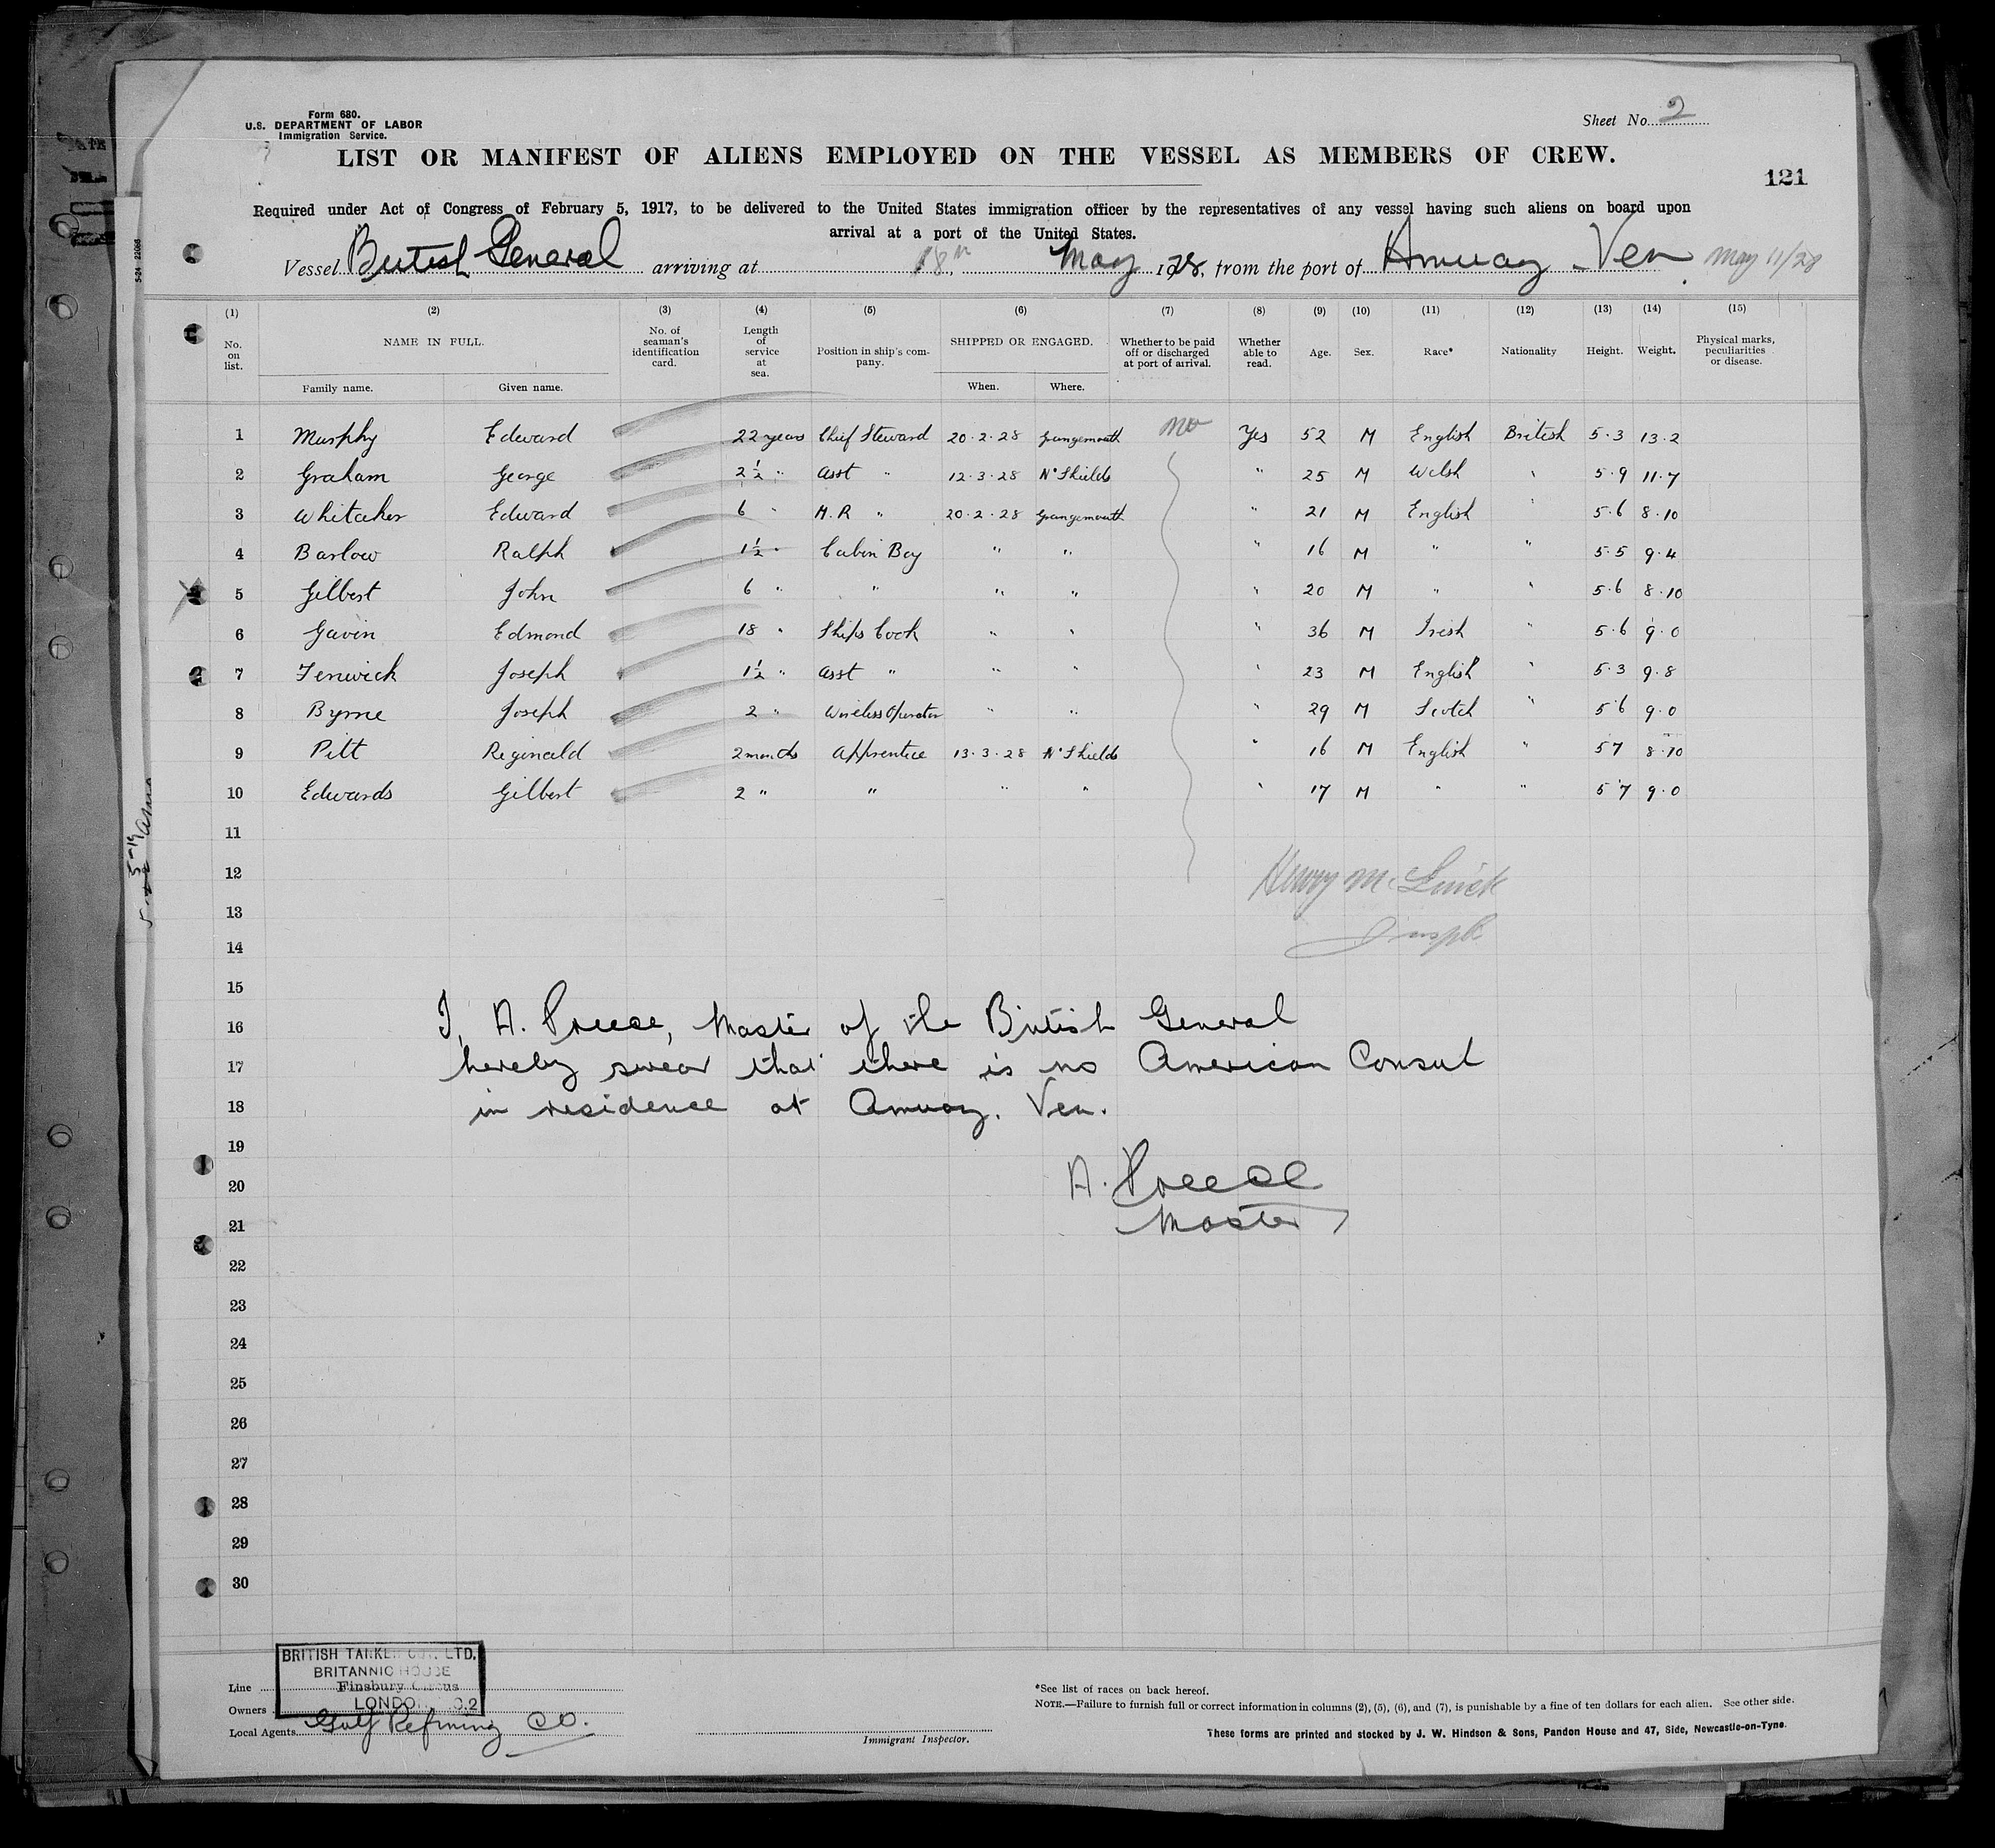 Form 680.
U.S. DEPARTMENT OF LABOR
Immigration Service.
Sheet No. 2
LIST OR MANIFEST OF ALIENS EMPLOYED ON THE VESSEL AS MEMBERS OF CREW.
121
Required under Act of Congress of February 5, 1917, to be delivered to the United States immigration officer by the representatives of any vessel having such aliens on board upon
arrival at a port of the United States.
Vessel British General arriving at 18th, May 1928, from the port of Amuay - Ven. May 11/28
(1) (2) (3) (4) (5) (6) (7) (8) (9) (10) (11) (12) (13) (14) (15)
No. on list. NAME IN FULL. No. of seaman's identification card. Length of service at sea. Position in ship's company. SHIPPED OR ENGAGED. Whether to be paid off or discharged at port of arrival. Whether able to read. Age. Sex. Race* Nationality Height. Weight. Physical marks, peculiarities or disease.
Family name. Given name. When. Where.
1 Murphy Edward 22 years Chief Steward 20.2.28 Grangemouth no Yes 52 M English British 5.3 13.2
2 Graham George 2½ " Asst " 12.3.28 No Shields " 25 M Welsh " 5.9 11.7
3 Whitaker Edward 6 " M.R " 20.2.28 Grangemouth " 21 M English " 5.6 8.10
4 Barlow Ralph 1½ " Cabin Boy " " " 16 M " " 5.5 9.4
5 Gilbert John 6 " " " " " 20 M " " 5.6 8.10
6 Gavin Edmond 18 " Ships Cook " " " 36 M Irish " 5.6 9.0
7 Fenwick Joseph 1½ " Asst " " " " 23 M English " 5.3 9.8
8 Byrne Joseph 2 " Wireless Operator " " " 29 M Scotch " 5.6 9.0
9 Pitt Reginald 2 months Apprentice 13.3.28 No Shields " 16 M English " 5 7 8.10
10 Edwards Gilbert 2 " " " " " 17 M " " 5.7 9.0
11
12
13
14
15
16 I, A. Preece, Master of the British General
17 hereby swear that there is no American Consul
18 in residence at Amuay. Ven.
19
20 A. Preece
21 Master
22
23
24
25
26
27
28
29
30
BRITISH TANKER CO., LTD.
BRITANNIC HOUSE
Finsbury Circus
LONDON
Line
Owners
Local Agents Gulf Refining Co.
Immigrant Inspector.
*See list of races on back hereof.
NOTE.—Failure to furnish full or correct information in columns (2), (5), (6), and (7), is punishable by a fine of ten dollars for each alien. See other side.
These forms are printed and stocked by J. W. Hindson & Sons, Pandon House and 47, Side, Newcastle-on-Tyne.